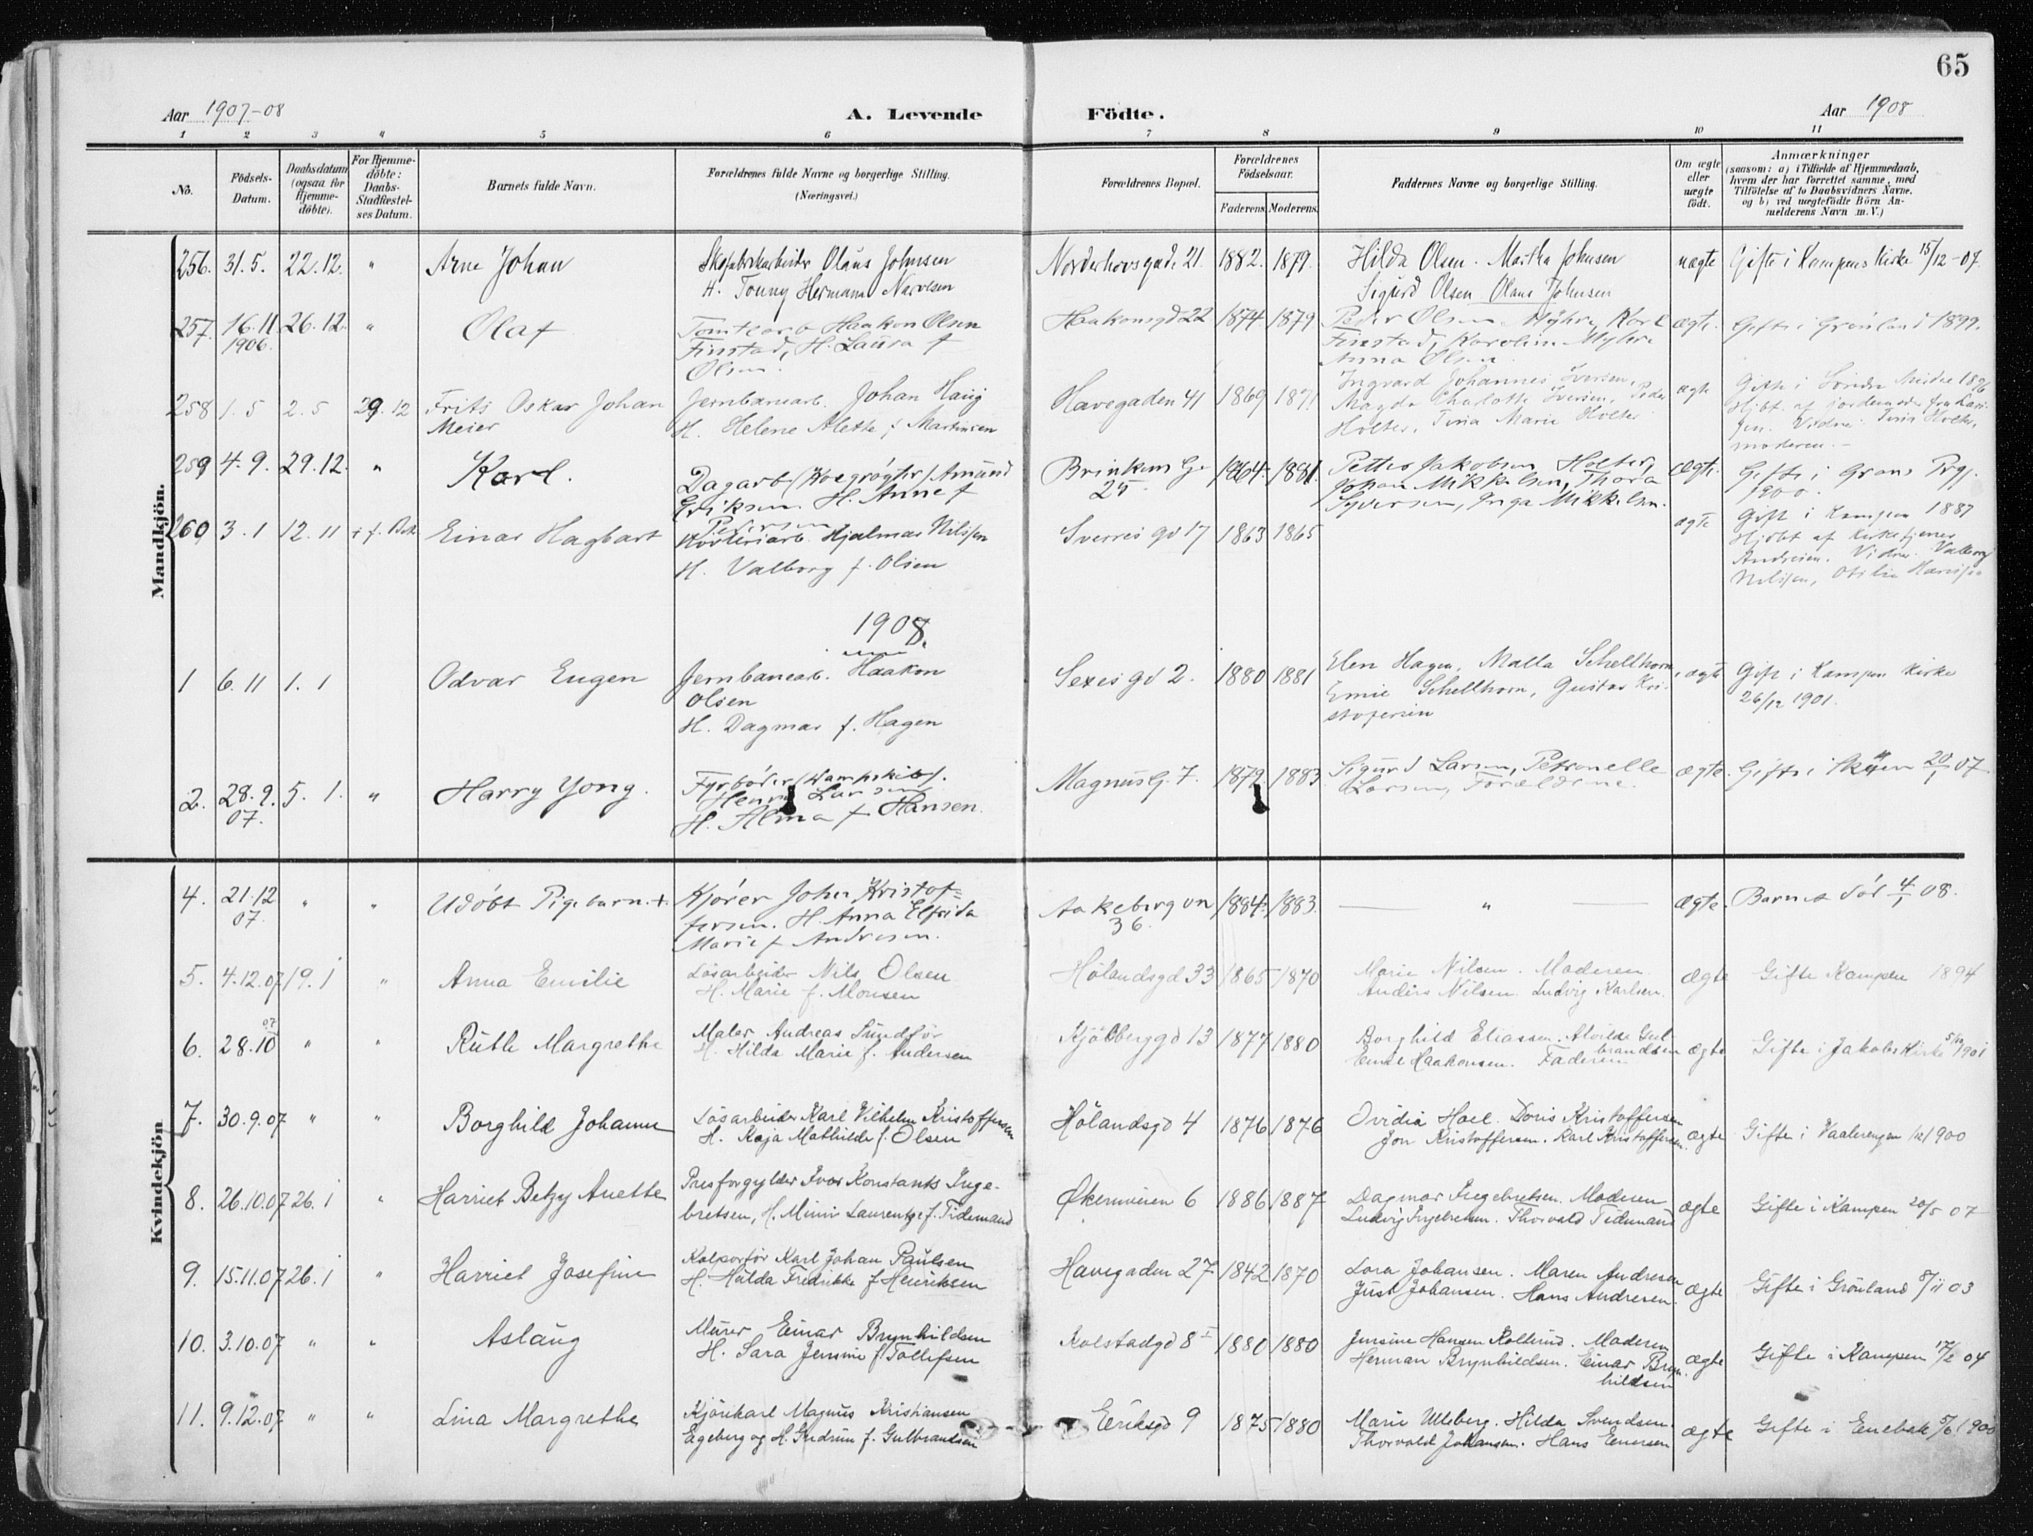 65
Aar 1907-08 A. Levende Födte. Aar 1908
1 2 3 4 5 6 7 8 9 10 11
No. Födsels-Datum. Daabsdatum (ogsaa for Hjemme-döbte). For Hjemme-döbte: Daabs-Stadfæstel-ses Datum. Barnets fulde Navn. Forældrenes fulde Navne og borgerlige Stilling. (Næringsvei.) Forældrenes Bopæl. Forældrenes Födselsaar. Faderens. Moderens. Faddernes Navne og borgerlige Stilling. Om ægte eller uægte födt. Anmærkninger (saasom: a) i Tilfælde af Hjemmedaab, hvem der har forrettet samme, med Tilföielse af to Daabsvidners Navne. og b) ved uægtefödte Börn An-melderens Navn m. V.)
Mandkjön.
256. 31.5. 22.12. " Arne Johan Olaus Johnsen Norderhovsgade 21 1882. 1879. Hilda Olsen. Martha Johnsen uægte Gifte i Kampens Kirke 15/12-07.
H. Tonny Hermana Sigurd Olsen Olaus Johnsen
257. 16.11 26.12. " Olaf Haakon Olsen Haakonsgd 22 1874 1879 Peder Olsen Myhre, Karl ægte. Gifte i Grønland 1899.
1906. Finstad, H. Laura f Finstad, Karoline Myhre
Olsen. Anna Olsen.
258 1.5 2.5 29.12 Frits Oskar Johan Jernbanearb. Johan Haug Havegaden 41 1869 1871 Ingvard Johannes Iversen, ægte Gift i 1896
Meier H. Helene Alette f. Martinsen Magda Charlotte Iversen, Peder Hjbt. af jordemoder fru
Holter, Tina Marie Holter Vidne: Tina Holter,
moderen.
259 4.9. 29.12. " Karl. Dagarb. Amund Brinkens G. 25 1864. 1881. Petter Jakobsen Holter, ægte. Gifte i Grans
Eriksen. H. Anne f Johan Mikkelsen, Thora 1900.
Pedersen Syversen, Inga Mikkelsen.
260 3.1 12.11 Einar Hagbart Hjalmar Nilssen Sverres gd 17 1863 1865 ægte Gift i Kampen 1887
H. Valborg f. Olsen Hjdbt af Kirketjener
Andresen. Vidne: Valborg
Nilssen, Otilie
1908.
1 6.11 1.1 Odvar Eugen Jernbanearb. Haakon Sexesgd 2. 1880 1881 Elen Hagen, Malla Schellhorn, ægte Gift i Kampen Kirke
Olsen Schellhorn, Gustav Kri- 26/12 1901.
H. Dagmar f. Hagen stofersen
2. 28.9. 5.1. " Harry Yong. Fyrbøder (Dampskib). Magnus G. 7. 1879. 1883 Sigurd Larsen, Petronelle ægte. Gifte i 07
07. Henry Larsen Larsen, Forældrene.
H. Alma f Hansen.
Kvindekjön
4. 21.12 " " Udøbt Pigebarn. + Kjører Johan Kristof- Aakeberg vn 36. 1884. 1883. " ægte. Barnet død 4/1 08.
07. fersen. H. Anna Elfrida
Marie f Andresen.
5. 4.12.07 19.1 " Anna Emilie Løsarbeider Nils Olsen Hølandsgd 33 1865 1870 Marie Nilsen. Moderen. ægte Gifte Kampen 1894
H. Marie f. Monsen Anders Nilsen. Ludvig Karlsen.
6. 28.10 07 " " Ruth Margrethe Maler Andreas Sundfør Kjølberggd 13 1877 1880 Borghild Eliassen. Alvilde Gul-brandsen ægte Gifte i Jakobs Kirke 1901
H. Hilda Marie f. Andersen Haakonsen. Faderen
7. 30.9.07 " " Borghild Johanne Løsarbeider Karl Vilhelm Kristoffersen Hølandsgd 4 1876 1876 Ovidia Hoel. Doris Kristoffersen ægte Gifte i Vaalerengen 1900
H. Kaja Mathilde f. Olsen Jon Kristoffersen. Karl Kristoffersen.
8. 26.10.07 26.1 " Harriet Betzy Anette Ivar Konstants Inge- Økernveien 6 1886 1887 Dagmar Ingebretsen. Moderen ægte Gifte i Kampen 20/5 07
bretsen, H. Mimi Laurentze f. Tidemand Ludvig Ingebretsen. Thorvald Tidemand
9. 15.11.07 26.1 " Harriet Josefine Kolportør Karl Johan Paulsen Havegaden 27 1842 1870 Lora Johansen. Maren Andresen ægte Gifte i Grönland 8/11 03
H. Hulda Fredrikke f Henriksen Just Johansen. Hans Andresen.
10. 3.10.07 " " Aslaug Murer Einar Brynhildsen Kolstadgd 8 I 1880 1880 Jensine Hansen Kollerud. Moderen ægte Gifte i Kampen 17/2 04
H. Sara Jensine f Tollefsen Herman Brynhildsen. Einar Bryn-
hildsen
11. 9.12.07 " " Lina Margrethe Kjørekarl Magnus Kristiansen Eriksgd 9 1875 1880 Marie Ulleberg. Hilda Svendsen. ægte Gifte i Enebak 5/6 1900
Egeberg og H. Gudrun f. Gulbrandsen Thorvald Johansen. Hans Enersen